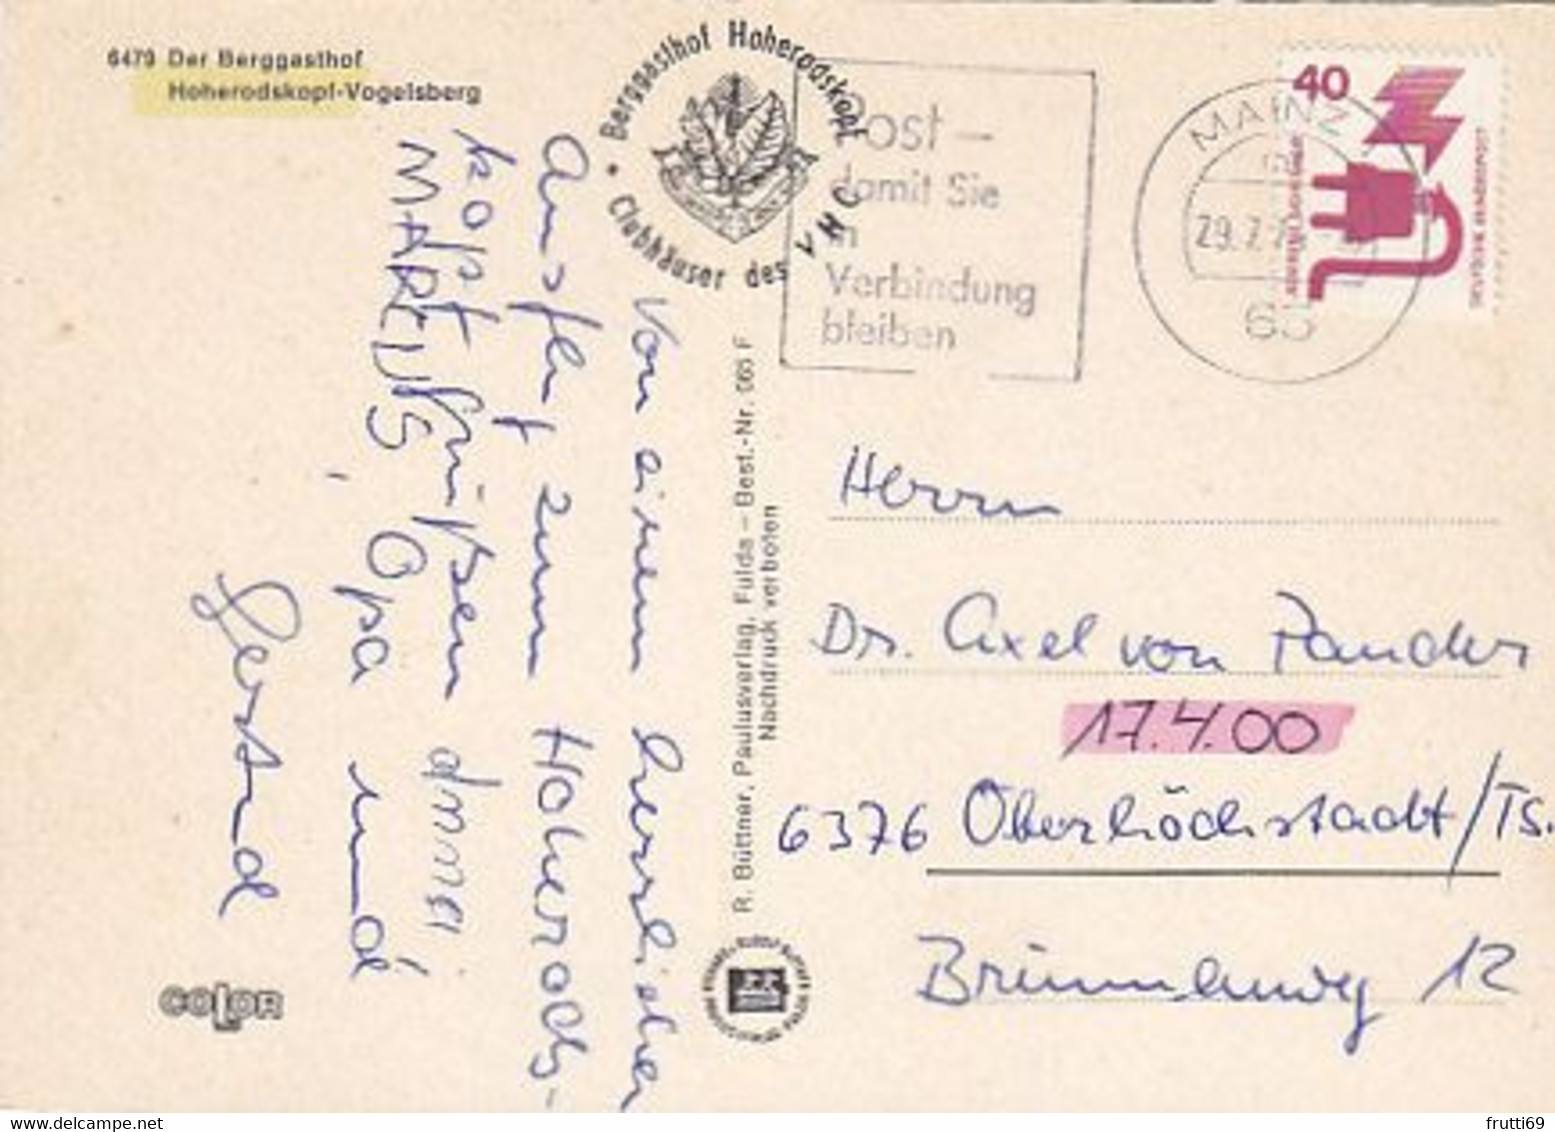 6479 Der Berggasthof
Hoherodskopf-Vogelsberg
Berggasthof Hoherodskopf
Clubhäuser des VHC
Post –
damit Sie
in
Verbindung
bleiben
MAINZ
29.7.7
65
40
Von einem herzlichen
Ausflug zum Hoherods-
kopf grüßen drei
MARKUS, Opa und
Gertrud
R. Büttner, Paulusverlag, Fulda – Best.-Nr. 065 F
Nachdruck verboten
Herrn
Dr. Axel von Zander
17.4.00
6376 Oberhöchstadt/Ts.
Brünnlenweg 12
COLOR
frutti69